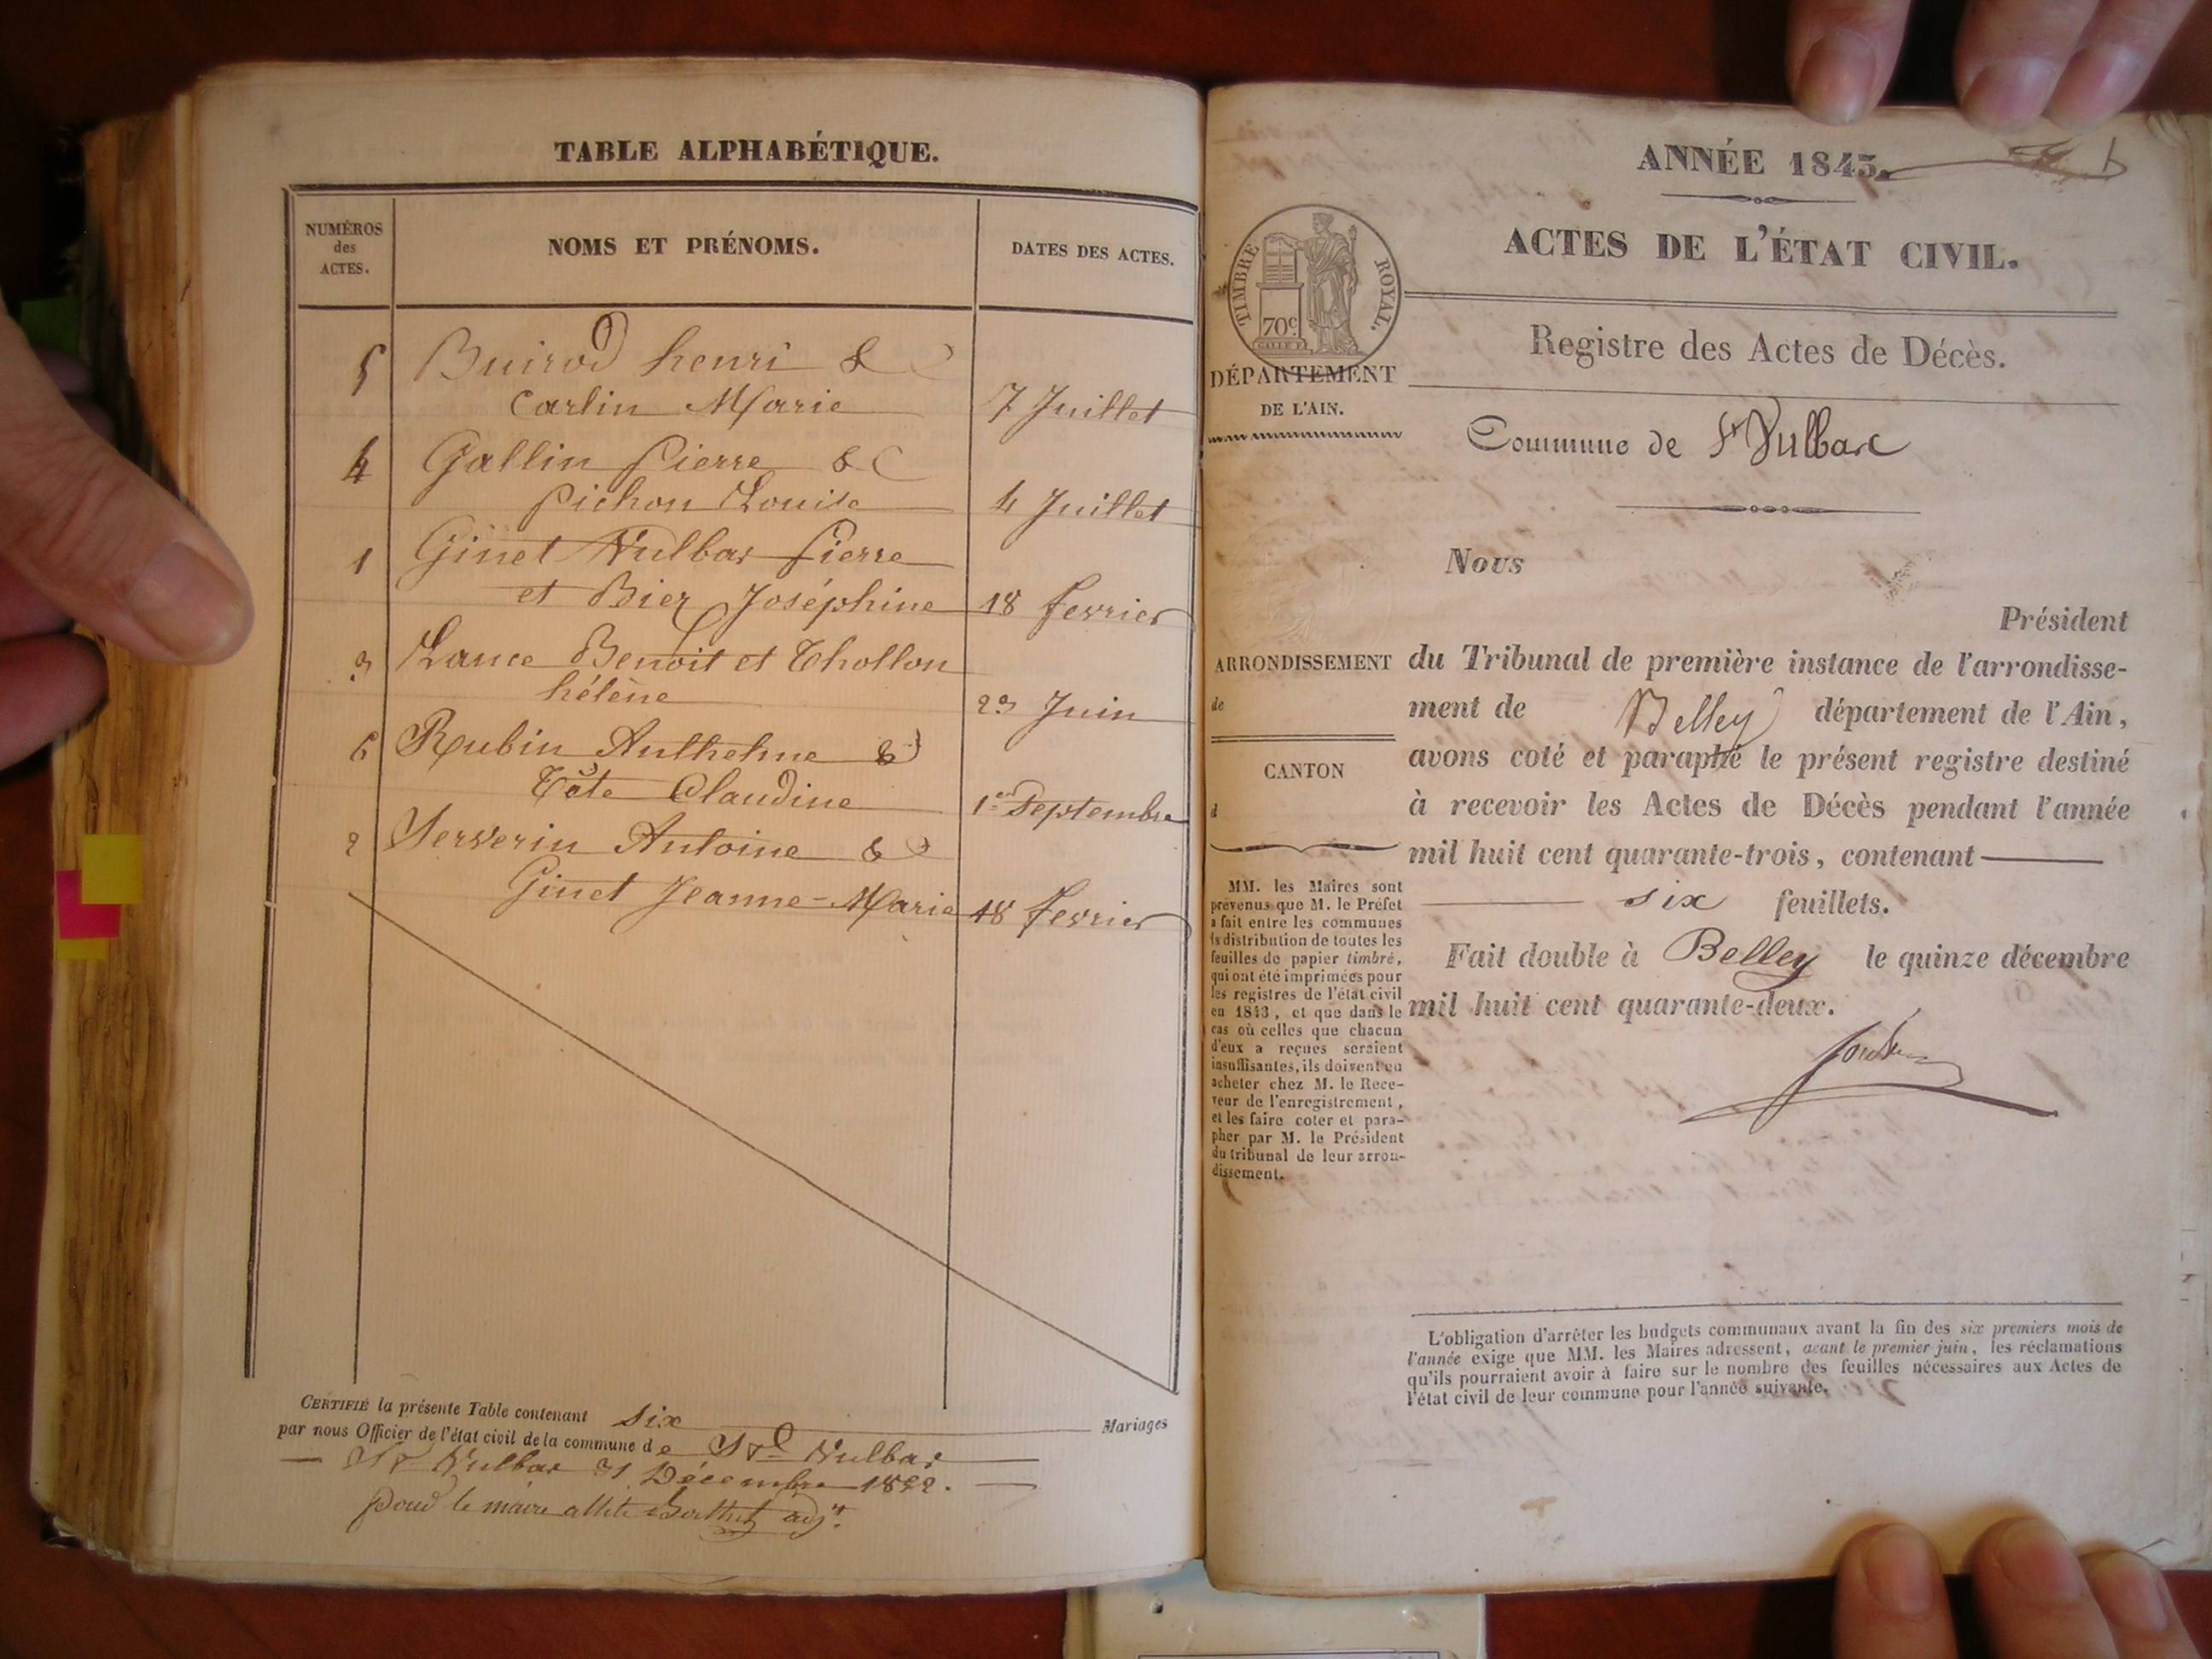 TABLE ALPHABÉTIQUE.
NUMÉROS
des
ACTES.
NOMS ET PRÉNOMS.
DATES DES ACTES.
5 Buirod henri &
Carlin Marie 7 Juillet
4 Gallin Pierre &
Pichon Louise 4 Juillet
1 Ginet Vulbas Pierre
et Bier Joséphine 18 fevrier
3 Lance Benoit et Thollon
hélène 23 Juin
6 Rubin Anthelme &
Tête Claudine 1er Septembre
2 Serverin Antoine &
Ginet Jeanne-Marie 18 fevrier
CERTIFIÉ la présente Table contenant six Mariages
par nous Officier de l'état civil de la commune de St Vulbas
St Vulbas 31 Décembre 1842.
pour le maire Berthet adjt.
ANNÉE 1843.
ACTES DE L'ÉTAT CIVIL.
TIMBRE ROYAL.
70c
DÉPARTEMENT
DE L'AIN.
Registre des Actes de Décès.
Commune de St Vulbas
Nous
Président
ARRONDISSEMENT
de
CANTON
d
du Tribunal de première instance de l'arrondisse-
ment de Belley département de l'Ain,
avons coté et paraphé le présent registre destiné
à recevoir les Actes de Décès pendant l'année
mil huit cent quarante-trois, contenant
six feuillets.
Fait double à Belley le quinze décembre
mil huit cent quarante-deux.
MM. les Maires sont
prévenus que M. le Préfet
a fait entre les communes
la distribution de toutes les
feuilles de papier timbré,
qui ont été imprimées pour
les registres de l'état civil
en 1843, et que dans le
cas où celles que chacun
d'eux a reçues seraient
insuffisantes, ils doivent en
acheter chez M. le Rece-
veur de l'enregistrement,
et les faire coter et para-
pher par M. le Président
du tribunal de leur arron-
dissement.
L'obligation d'arrêter les budgets communaux avant la fin des six premiers mois de
l'année exige que MM. les Maires adressent, avant le premier juin, les réclamations
qu'ils pourraient avoir à faire sur le nombre des feuilles nécessaires aux Actes de
l'état civil de leur commune pour l'année suivante.